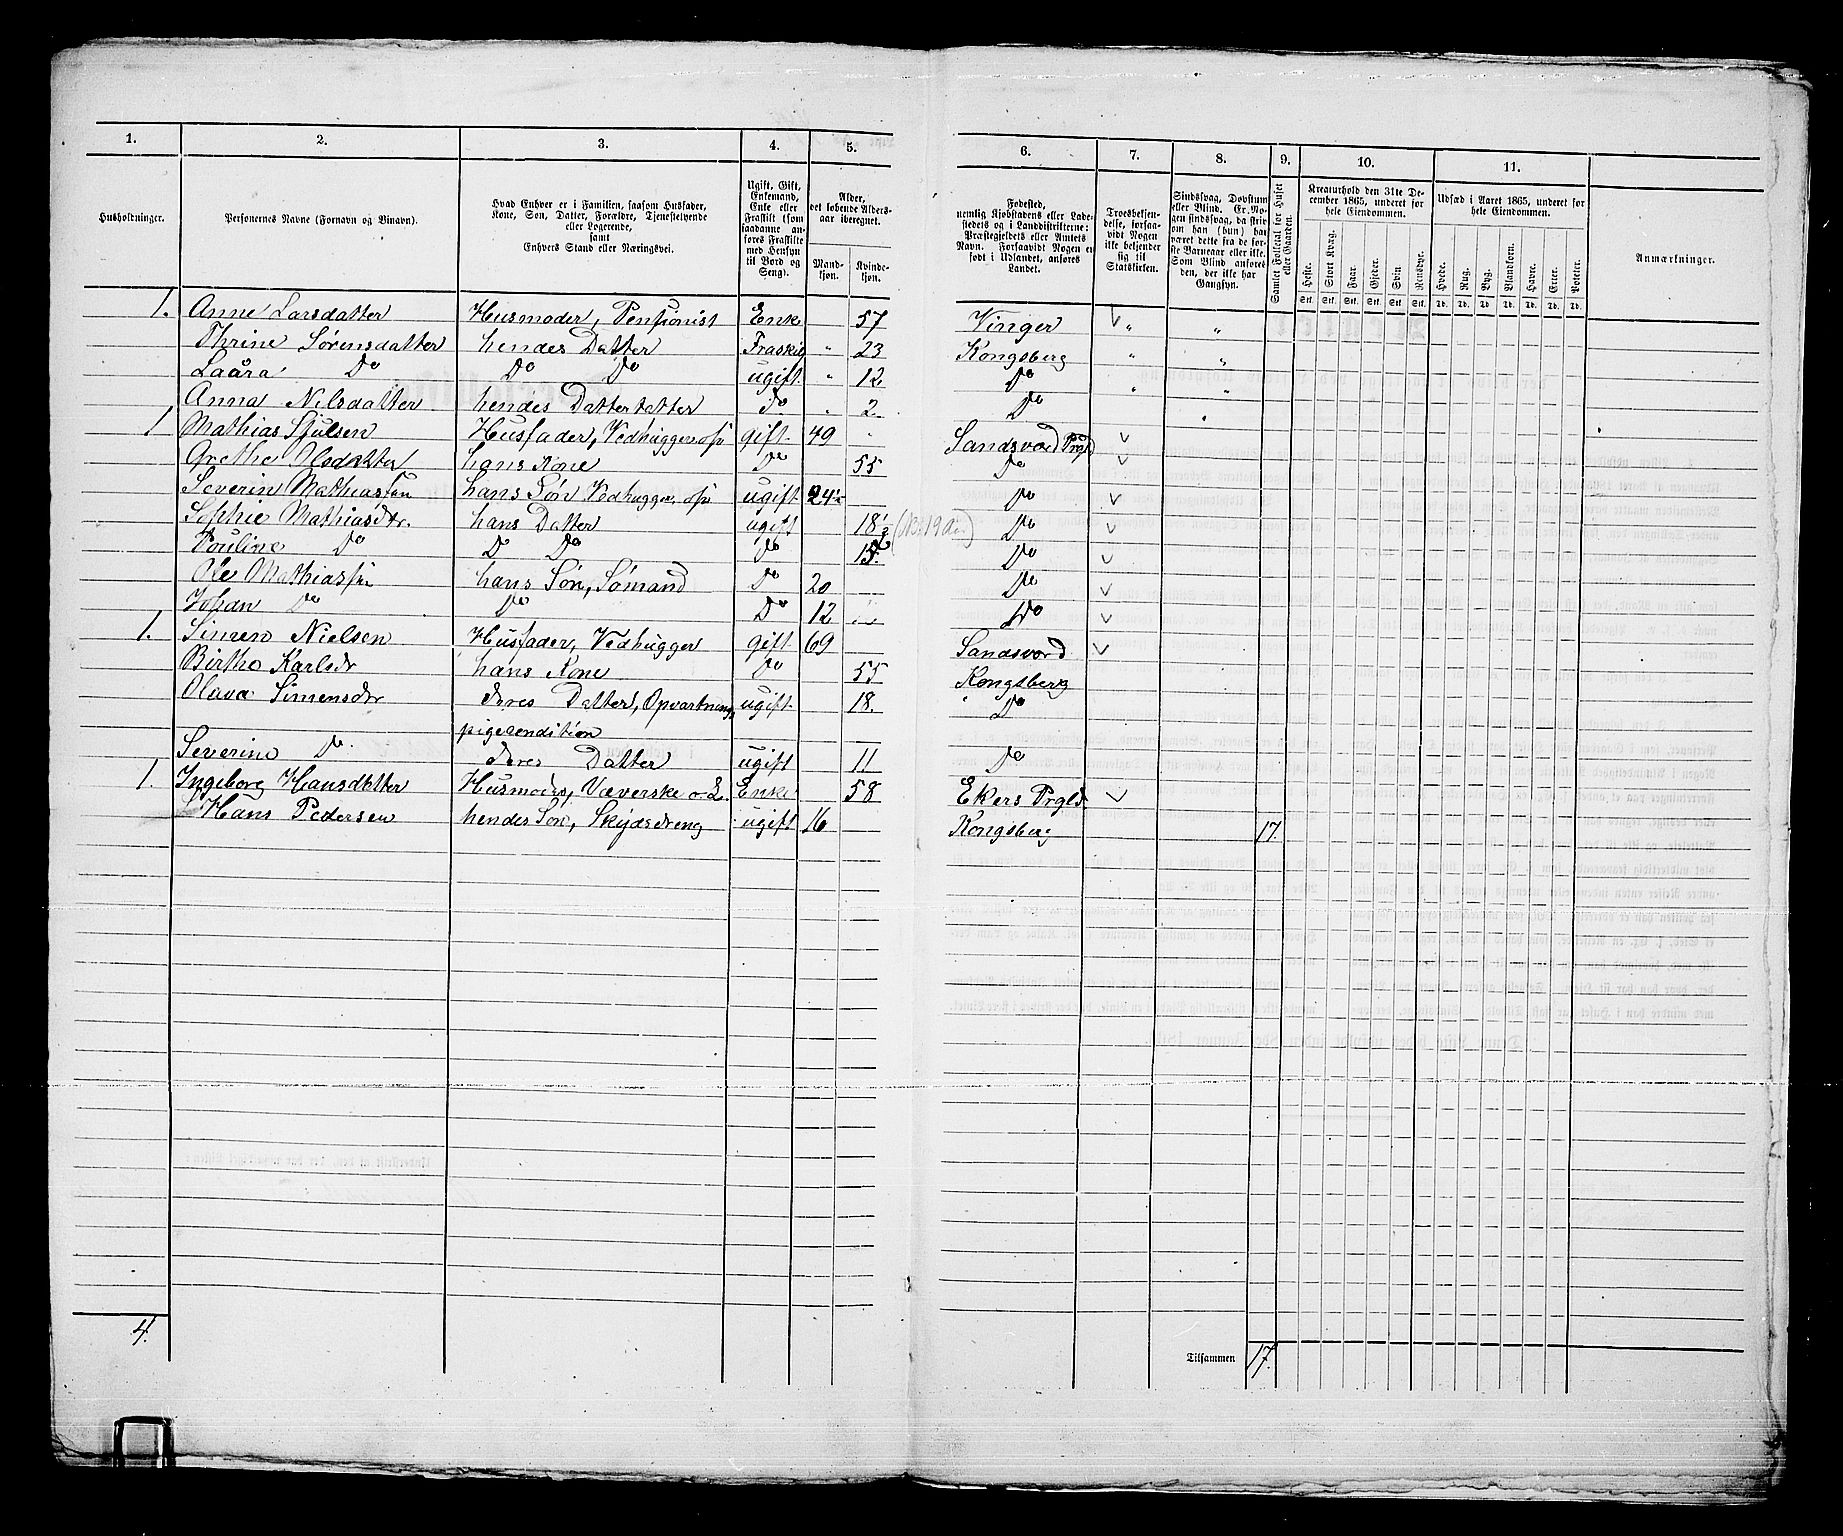 1. 2. 3. 4. 5. 6. 7. 8. 9. 10. 11.
Husholdninger.
Personernes Navne (Fornavn og Binavn).
Hvad Enhver er i Familien, saasom Husfader, Kone, Søn, Datter, Forældre, Tjenestetyende eller Logerende, samt Enhvers Stand eller Næringsvei.
Ugift, Gift, Enkemand, Enke eller Fraskilt (som saadanne anføres Fraskilte med Hensyn til Bord og Seng).
Alder, det løbende Aldersaar iberegnet.
Mandkjøn. Kvindekjøn.
Fødested, nemlig Kjøbstadens eller Ladestedets og i Landdistrikterne: Præstegjeldets eller Amtets Navn. Forsaavidt Nogen er født i Udlandet, anføres Landet.
Troesbekjendelse, forsaavidt Nogen ikke bekjender sig til Statskirken.
Sindssvag, Døvstum eller Blind. Er Nogen sindssvag, da skrives om han (hun) har været dette fra de første Barneaar eller ikke. Som Blind anføres den, der ikke har Gangsyn.
Samlet Folketal for Huset eller Gaarden.
Kreaturhold den 31te December 1865, underet for hele Eiendommen.
Heste. Stort Kvæg. Faar. Gjeder. Svin. Rensdyr.
Stk. Stk. Stk. Stk. Stk. Stk.
Udsæd i Aaret 1865, underet for hele Eiendommen.
Hvede. Rug. Byg. Blandkorn. Havre. Erter. Poteter.
Td. Td. Td. Td. Td. Td. Td.
Anmærkninger.
1. Anne Larsdatter Husmoder, Pensjonist Enke 57 Vinger
Thrine Sørensdatter hendes Datter Fraskig " 23 Kongsberg " "
Laura Do Do Do ugift. " 12 Do " "
Anna Nilsdatter hendes Datterdatter Do " 2 Do " "
1 Mathias Husfader, Vedhugger gift 49 Sandsvord Prgld
Grethe Olsdatter hans Kone Do 55 Do
Severin Mathiassen hans Søn Vedhugger ugift 24 Do
Sophie Mathiasdr. hans Datter ugift 18 Do
Pouline Do D Do Do 15 Do
Ole Mathiassen hans Søn, Sømand Do 20 Do
Johan Do Do Do 12 Do
1. Simen Nielsen Husfader, Vedhugger gift 69 Sandsvord
Birthe Karlsdr hans Kone Do 55 Kongsberg
Olava Simensdr deres Datter, Opvartnings ugift 18. Do
pigecondition
Severine Do deres Datter ugift 11 Do
1. Ingeborg Hansdatter Husmoder, Væverske o. L. Enke 58 Ekers Prgld
Hans Pedersen hendes Søn, Skydsdreng ugift 16 Kongsberg 17.
4. Tilsammen 17.